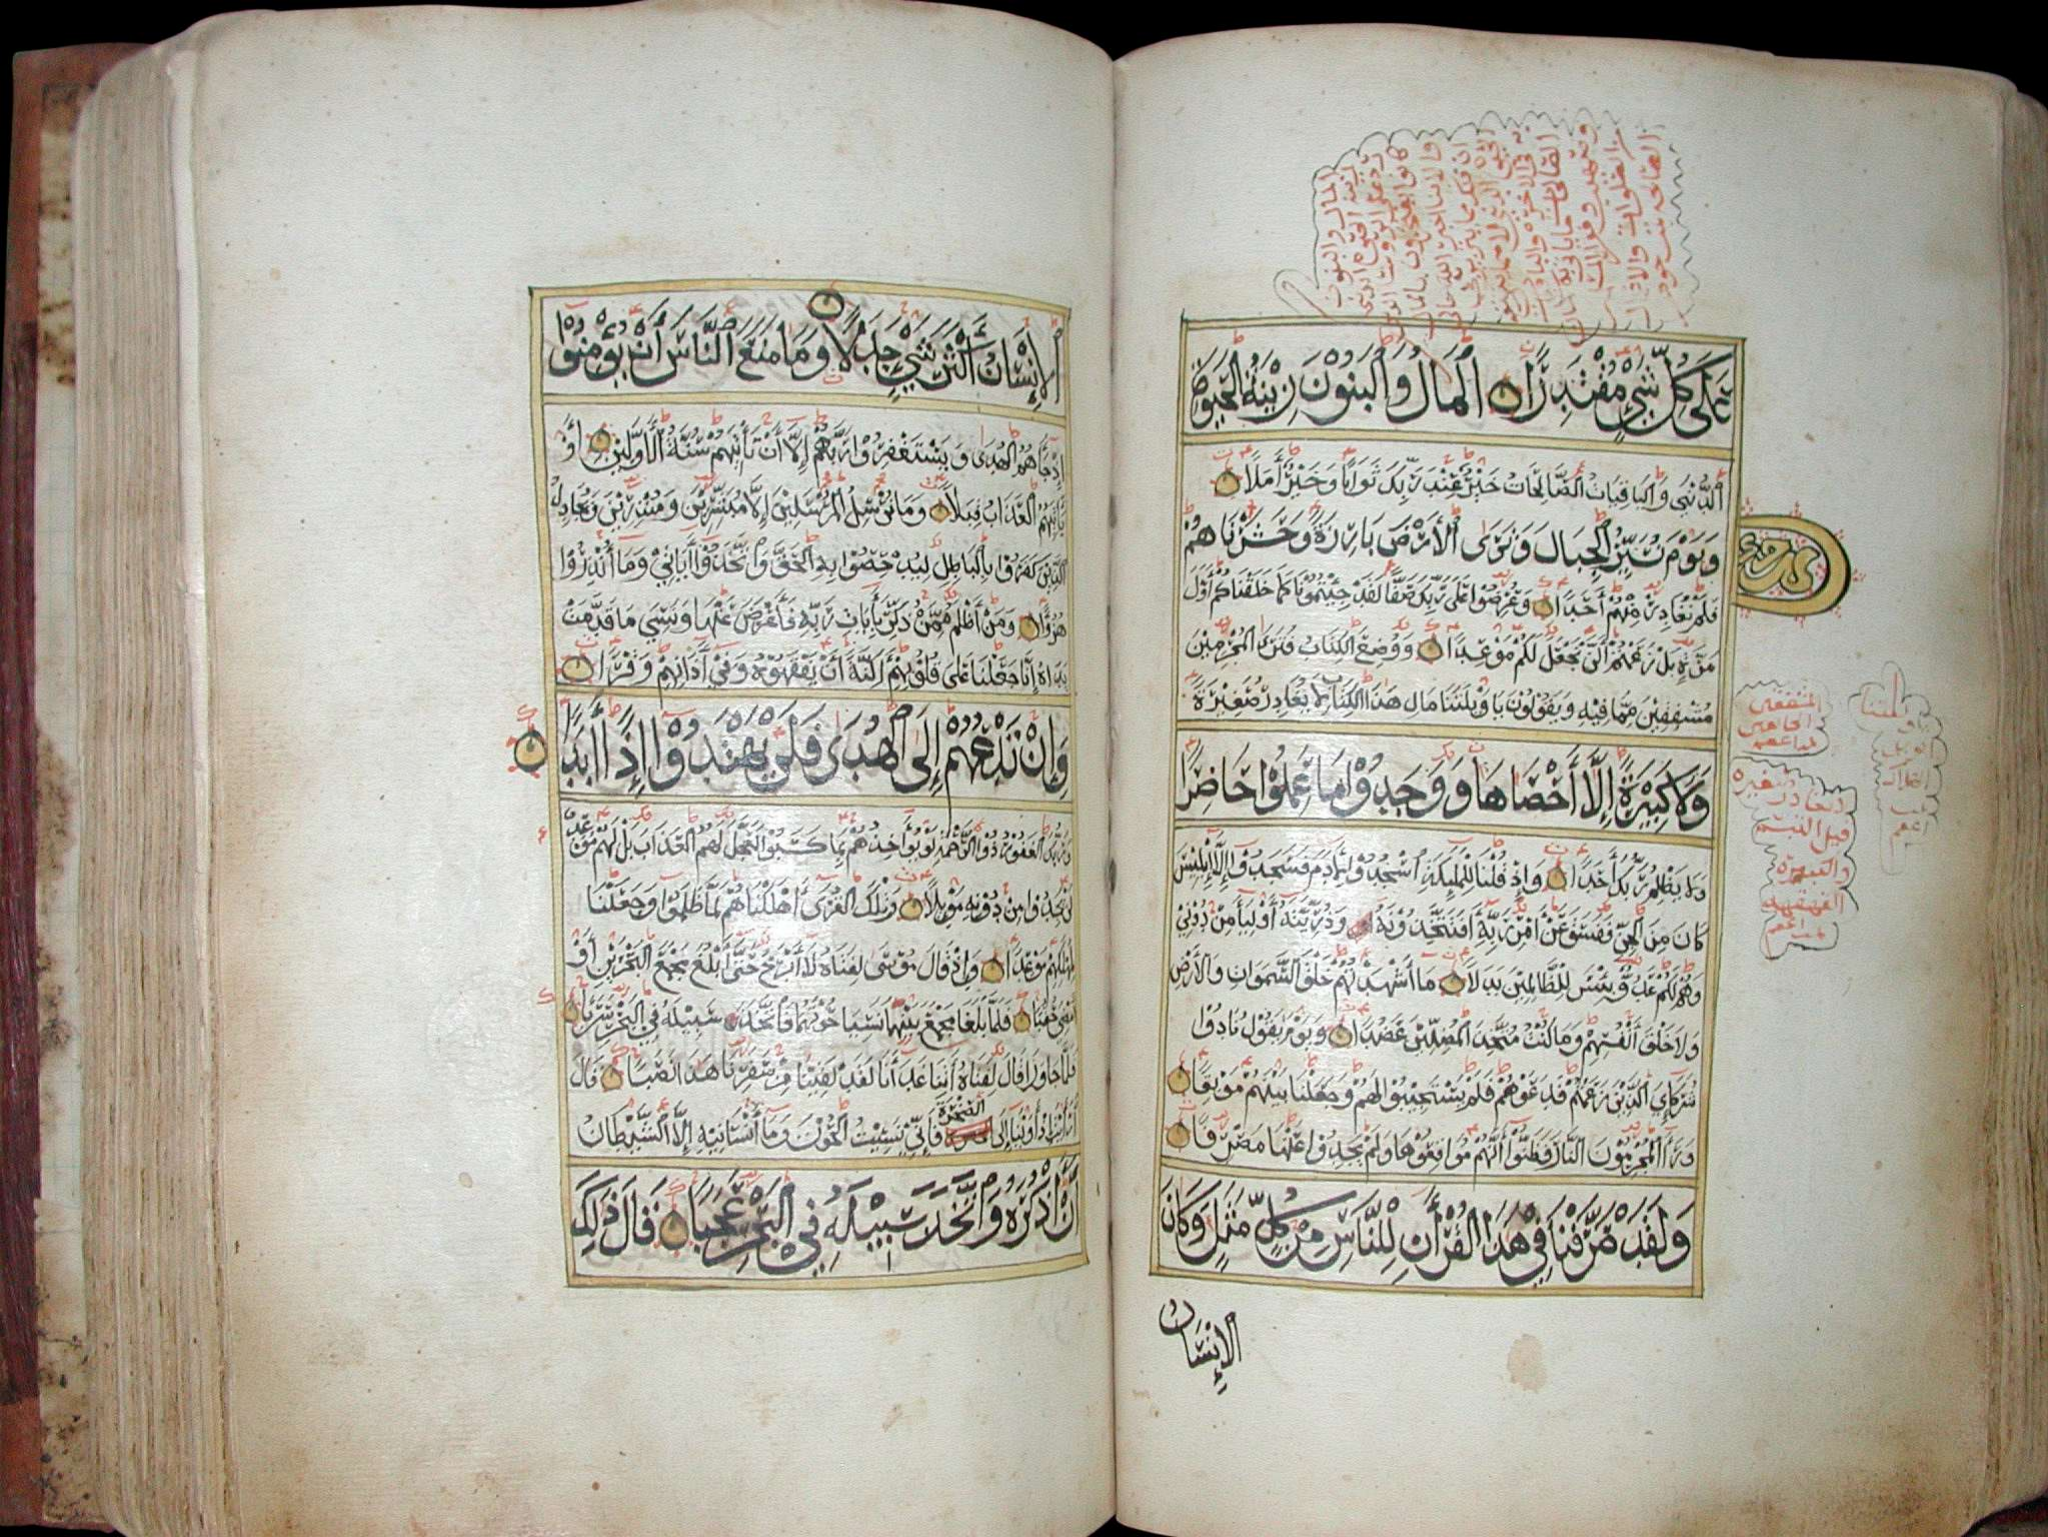 عَلَى كُلِّ شَيْءٍ مُقْتَدِرًا الْمَالُ وَالْبَنُونَ زِينَةُ الْحَيٰوةِ
الدُّنْيَا وَالْبَاقِيَاتُ الصَّالِحَاتُ خَيْرٌ عِنْدَ رَبِّكَ ثَوَابًا وَخَيْرٌ أَمَلًا
وَيَوْمَ نُسَيِّرُ الْجِبَالَ وَتَرَى الْأَرْضَ بَارِزَةً وَحَشَرْنَاهُمْ
فَلَمْ نُغَادِرْ مِنْهُمْ أَحَدًا وَعُرِضُوا عَلَى رَبِّكَ صَفًّا لَقَدْ جِئْتُمُونَا كَمَا خَلَقْنَاكُمْ أَوَّلَ
مَرَّةٍ بَلْ زَعَمْتُمْ أَلَّنْ نَجْعَلَ لَكُمْ مَوْعِدًا وَوُضِعَ الْكِتَابُ فَتَرَى الْمُجْرِمِينَ
مُشْفِقِينَ مِمَّا فِيهِ وَيَقُولُونَ يَا وَيْلَتَنَا مَالِ هَذَا الْكِتَابِ لَا يُغَادِرُ صَغِيرَةً
وَلَا كَبِيرَةً إِلَّا أَحْصَاهَا وَوَجَدُوا مَا عَمِلُوا حَاضِرًا
وَلَا يَظْلِمُ رَبُّكَ أَحَدًا وَإِذْ قُلْنَا لِلْمَلَٰئِكَةِ اسْجُدُوا لِآدَمَ فَسَجَدُوا إِلَّا إِبْلِيسَ
كَانَ مِنَ الْجِنِّ فَفَسَقَ عَنْ أَمْرِ رَبِّهِ أَفَتَتَّخِذُونَهُ وَذُرِّيَّتَهُ أَوْلِيَاءَ مِنْ دُونِي
وَهُمْ لَكُمْ عَدُوٌّ بِئْسَ لِلظَّالِمِينَ بَدَلًا مَا أَشْهَدْتُهُمْ خَلْقَ السَّمٰوَاتِ وَالْأَرْضِ
وَلَا خَلْقَ أَنْفُسِهِمْ وَمَا كُنْتُ مُتَّخِذَ الْمُضِلِّينَ عَضُدًا وَيَوْمَ يَقُولُ نَادُوا
شُرَكَاءِيَ الَّذِينَ زَعَمْتُمْ فَدَعَوْهُمْ فَلَمْ يَسْتَجِيبُوا لَهُمْ وَجَعَلْنَا بَيْنَهُمْ مَوْبِقًا
وَرَأَى الْمُجْرِمُونَ النَّارَ فَظَنُّوا أَنَّهُمْ مُوَاقِعُوهَا وَلَمْ يَجِدُوا عَنْهَا مَصْرِفًا
وَلَقَدْ صَرَّفْنَا فِي هَذَا الْقُرْآنِ لِلنَّاسِ مِنْ كُلِّ مَثَلٍ وَكَانَ
الْإِنْسَانُ
الْإِنْسَانُ أَكْثَرَ شَيْءٍ جَدَلًا وَمَا مَنَعَ النَّاسَ أَنْ يُؤْمِنُوا
إِذْ جَاءَهُمُ الْهُدَى وَيَسْتَغْفِرُوا رَبَّهُمْ إِلَّا أَنْ تَأْتِيَهُمْ سُنَّةُ الْأَوَّلِينَ أَوْ
يَأْتِيَهُمُ الْعَذَابُ قُبُلًا وَمَا نُرْسِلُ الْمُرْسَلِينَ إِلَّا مُبَشِّرِينَ وَمُنْذِرِينَ وَيُجَادِلُ
الَّذِينَ كَفَرُوا بِالْبَاطِلِ لِيُدْحِضُوا بِهِ الْحَقَّ وَاتَّخَذُوا آيَاتِي وَمَا أُنْذِرُوا
هُزُوًا وَمَنْ أَظْلَمُ مِمَّنْ ذُكِّرَ بِآيَاتِ رَبِّهِ فَأَعْرَضَ عَنْهَا وَنَسِيَ مَا قَدَّمَتْ
يَدَاهُ إِنَّا جَعَلْنَا عَلَى قُلُوبِهِمْ أَكِنَّةً أَنْ يَفْقَهُوهُ وَفِي آذَانِهِمْ وَقْرًا
وَإِنْ تَدْعُهُمْ إِلَى الْهُدَى فَلَنْ يَهْتَدُوا إِذًا أَبَدًا
وَرَبُّكَ الْغَفُورُ ذُو الرَّحْمَةِ لَوْ يُؤَاخِذُهُمْ بِمَا كَسَبُوا لَعَجَّلَ لَهُمُ الْعَذَابَ بَلْ لَهُمْ مَوْعِدٌ
لَنْ يَجِدُوا مِنْ دُونِهِ مَوْئِلًا وَتِلْكَ الْقُرَى أَهْلَكْنَاهُمْ لَمَّا ظَلَمُوا وَجَعَلْنَا
لِمَهْلِكِهِمْ مَوْعِدًا وَإِذْ قَالَ مُوسَى لِفَتَاهُ لَا أَبْرَحُ حَتَّى أَبْلُغَ مَجْمَعَ الْبَحْرَيْنِ أَوْ
أَمْضِيَ حُقُبًا فَلَمَّا بَلَغَا مَجْمَعَ بَيْنِهِمَا نَسِيَا حُوتَهُمَا فَاتَّخَذَ سَبِيلَهُ فِي الْبَحْرِ سَرَبًا
فَلَمَّا جَاوَزَا قَالَ لِفَتَاهُ آتِنَا غَدَاءَنَا لَقَدْ لَقِينَا مِنْ سَفَرِنَا هَذَا نَصَبًا قَالَ
أَرَأَيْتَ إِذْ أَوَيْنَا إِلَى الصَّخْرَةِ فَإِنِّي نَسِيتُ الْحُوتَ وَمَا أَنْسَانِيهُ إِلَّا الشَّيْطَانُ
أَنْ أَذْكُرَهُ وَاتَّخَذَ سَبِيلَهُ فِي الْبَحْرِ عَجَبًا قَالَ ذَلِكَ